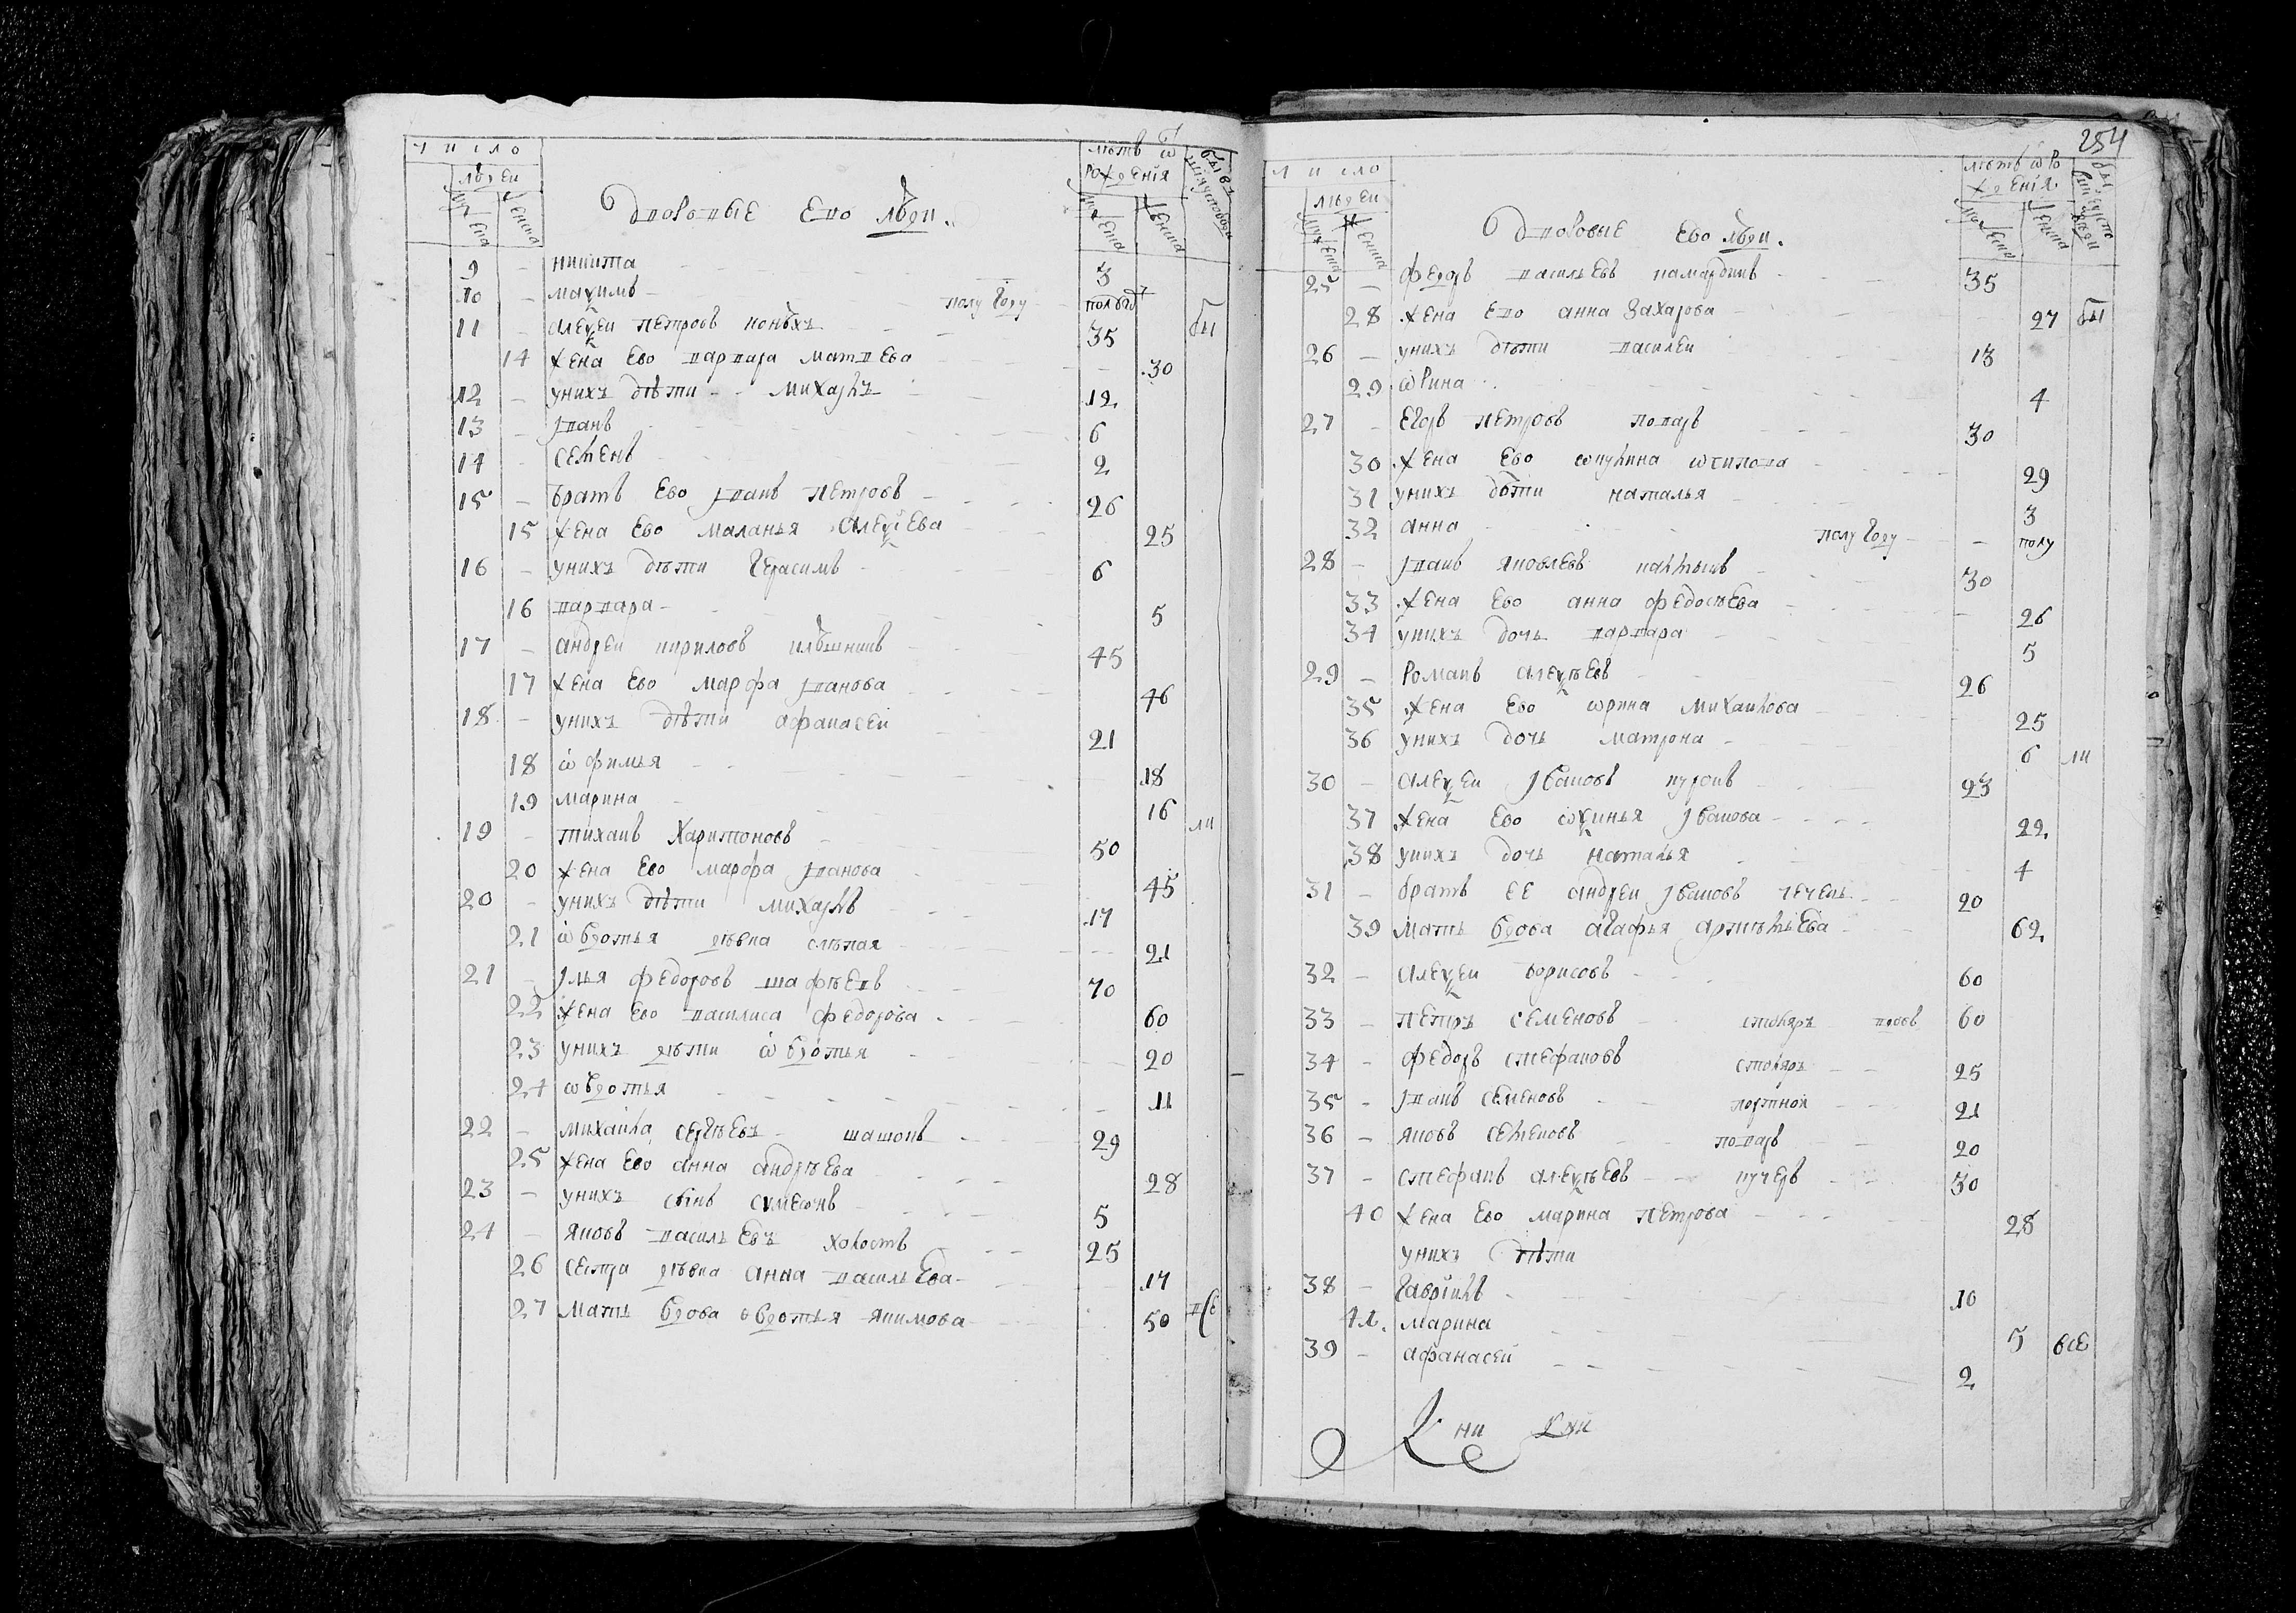 число
людеи
муж еска
женска
дворовые ево люди.
летъ ѿ рождения
муж еска
женска
9 – никита – 3
10 – маѯимъ – полу году
11 – алеѯеи петровъ 35 бы
14 жена ево варвара матвева 30
12 – унихъ дѣти – михаилъ 12
13 – иванъ – 6
14 – семенъ – 2
15 – братъ ево иванъ петровъ – 26
15 жена ево маланья алеѯѣева 25
16 – унихъ дѣти герасимъ – 6
16 варвара – 5
17 – андреи кириловъ 45
17 жена ево марфа иванова 46
18 – унихъ дѣти афанасеи 21
18 ѡфимья 18
19 марина 16 ли
19 – тиханъ харитоновъ – 50
20 жена ево марфа иванова 45
20 – унихъ дѣти михаилъ 17
21 ѡвдотья дѣвка слѣпая 21
21 – илья федоровъ 70
22 жена ево василиса федорова 60
23 унихъ дѣти ѡвдотья 20
24 ѡвдотья 11
22 – михаила сергѣевъ шашонъ 29
25 жена ево анна андрѣева 28
23 – унихъ сынъ симеѡнъ 5
24 – яковъ васильевъ холостъ 25
26 сестра дѣвка анна васильева 17
27 мать вдова овдотья якимова 50 все
254
число
людеи
муж еска
женска
дворовые ево люди.
летъ ѿ рождения
муж еска
женска
25 – федоръ васильевъ 35
28 жена ево анна захарова 27 бы
26 – унихъ дѣти василеи 13
29 ѡрина 4
27 – егоръ петровъ поваръ 30
30 жена ево ѡкулина 29
31 унихъ дѣти наталья 3
32 анна полу году – полу
28 – иванъ яковлевъ 30
33 жена ево анна федосѣева 26
34 унихъ дочь варвара 5
29 – романъ алеѯѣевъ 26
35 жена ево ѡрина михаилова 25
36 унихъ дочь матрона 6 ли
30 – алеѯеи ивановъ 23
37 жена ево ѡѯинья иванова 22
38 унихъ дочь наталья 4
31 – братъ ее андреи ивановъ 20
39 мать вдова агафья артемьева 62
32 – алеѯеи борисовъ 60
33 – петръ семеновъ столяръ вдовъ 60
34 – федоръ стефановъ столяръ 25
35 – иванъ семеновъ портной 21
36 – яковъ семеновъ поваръ 20
37 – стефанъ алеѯѣевъ кучеръ 30
40 жена ево марина петрова 28
унихъ дѣти
38 – гаврила 10
41 марина 5 все
39 – афанасей 2